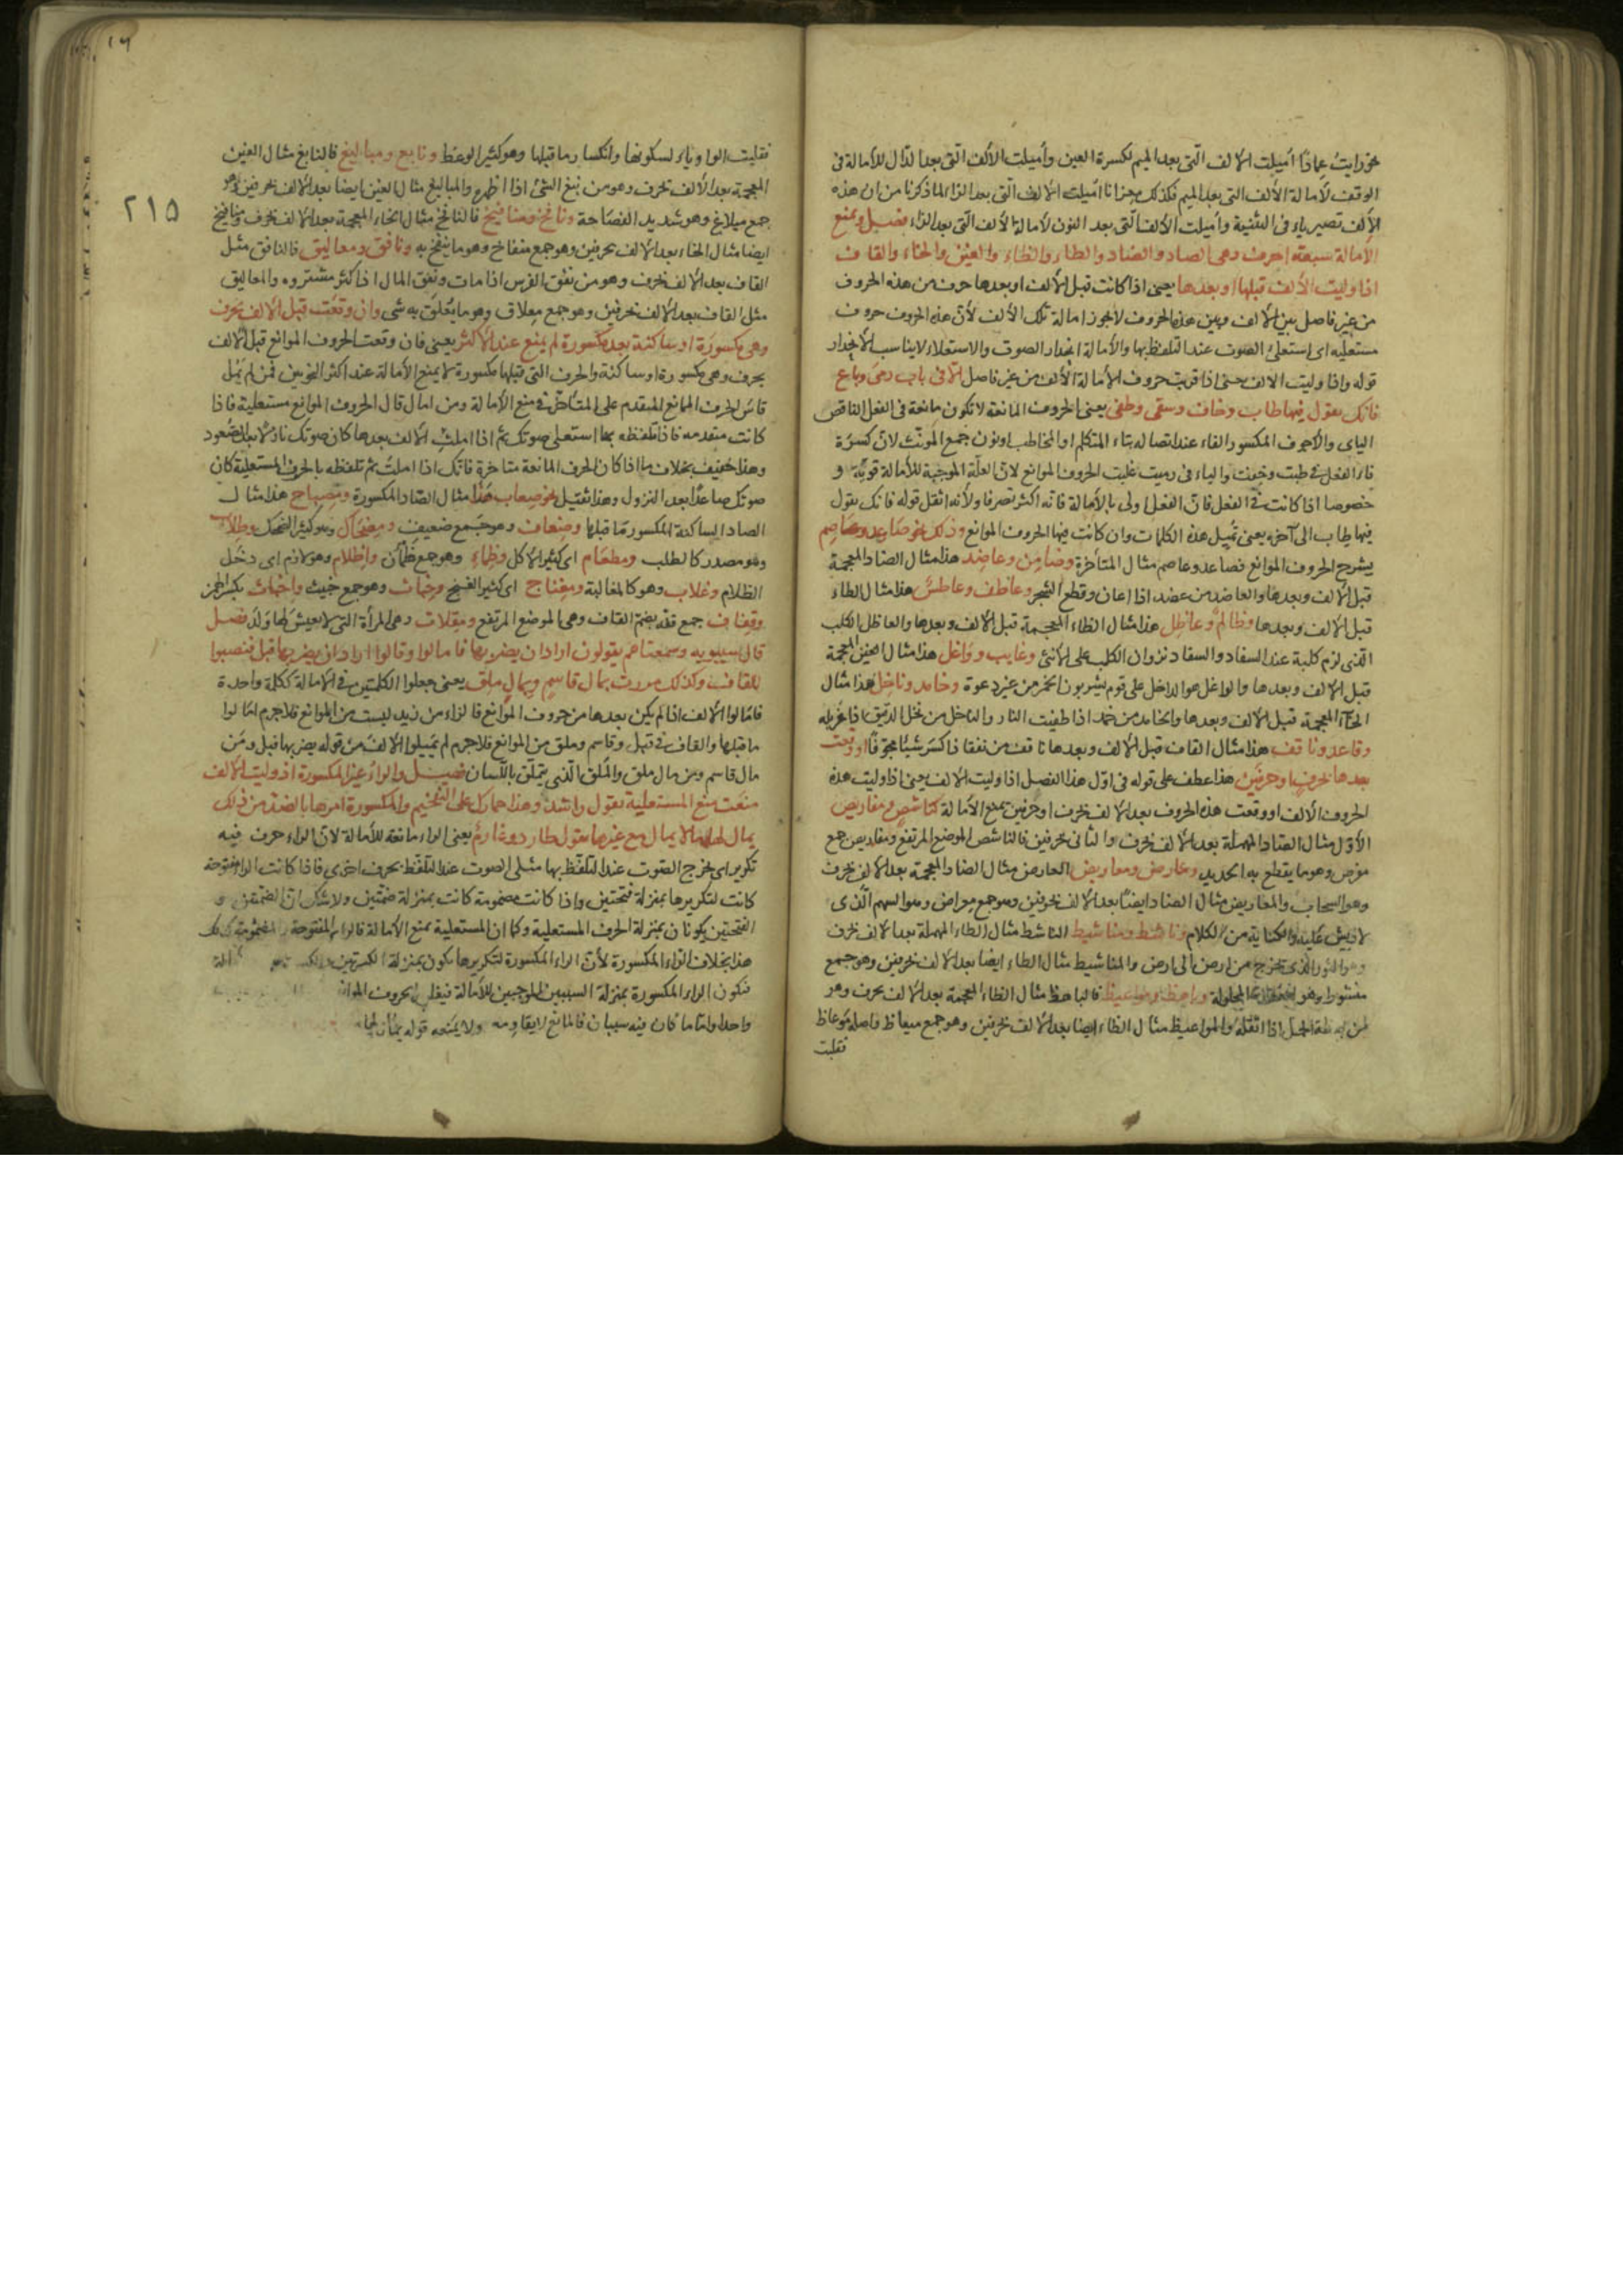 نحو رايت عِمادًا اُميلت الالف الّتى بعد الميم لكسرة العين واُميلت الالف الّتى بعد الدّال للأمالة فى
الوقف لأمالة الألف التى بعد الميم فكذلك اُميلت الالف الّتى بعد الزاء لما ذكرنا من ان هذه
الالف تصير ياء فى التثنية واُميلت الألف الّتى بعد النون لأمالة الألف الّتى بعد الزاء فصل ويمنع
الأمالة سبعة احرف وهى الصاد والضاد والطاء والظاء والغين والخاء والقاف
اذا وليت الألف قبلها او بعدها يعنى اذا كانت قبل الألف او بعدها حرف من هذه الحروف
من غير فاصل بين الالف وبين هذه الحروف لا يجوز امالة تلك الألف لأنّ هذه الحروف حروف
مستعليه اى يستعلى الصوت عند التلفظ بها والأمالة انحدار الصوت والاستعلاء لا يناسب الانحدار
قوله واذا وليت الالف حتى اذا قربت حروف الأمالة الألف من غير فاصل الا فى باب رمى وباع
فانك تقول فيها طاب وخاف وسقى وطغى يعنى الحروف المانعة لا تكون مانعة فى الفعل الناقص
الياى والأجوف المكسور الفاء عند اتصاله بتاء المتكلم او المخاطب او نون جمع المونث لانّ كسرة
فاء الفعل فى طبت وخفت والياء فى رميت غلبت الحروف الموانع لانّ العلّة الموجبة للأمالة قويّة و
خصوصا اذا كانت فى الفعل فانّ الفعل اولى بالأمالة فانّه اكثر تصرفا ولأنه اثقل قوله فانك تقول
فيها طاب الى آخره يعنى تُميل هذه الكلمات وان كانت فيها الحروف الموانع وذلك نحو صَاعِد وعَاصِم
يشرح الحروف الموانع فصاعد وعاصم مثال المتأخرة وضامن وعاضد هذا مثال الضاد المعجمة
قبل الالف وبعدها والعاضد من عضد اذا اعان وقطع الشجر وعاطف وعاطس هذا مثال الطاء
قبل الالف وبعدها وظالم وعاظل هذا مثال الظاء المعجمة قبل الالف وبعدها والعاظل الكلب
الّذى لزم كلبة عند السفاد والسفاد نزوان الكلب على الانثى وغايب وواغل هذا مثال الغين المعجمة
قبل الالف وبعدها والواغل هو الداخل على قوم يشربون الخمر من غير دعوة وخامد وناخل هذا مثال
الخاء المعجمة قبل الالف وبعدها والخامد من خمد اذا طفيت النار والناخل من نخل الدقيق اذا غربله
وقاعد وناقف هذا مثال القاف قبل الالف وبعدها ناقف من نقف اذا كسَر شيئًا مجوّفًا او وقعت
بعدها بحرف او حرفين هذا عطف على قوله فى اوّل هذا الفصل اذا وليت الالف يعنى اذا وليت هذه
الحروف الألف او وقعت هذه الحروف بعد الالف بحرف او حرفين يمنع الأمالة كناشص ومقاريص
الأوّل مثال الصاد المهملة بعد الالف بحرف والثانى بحرفين فالناشص الموضع المرتفع ومقاريص جمع
مقرض وهو ما يقطع به الحديد وعارض ومعاريض العارض مثال الضاد المعجمة بعد الالف بحرف
وهو السحاب والمعاريض مثال الضاد ايضًا بعد الالف بحرفين وهو جمع معراض وهو السهم الّذى
لا ريش عليه والكناية من الكلام وناشط ومناشيط الناشط مثال الطاء المهملة بعد الالف بحرف
وهو الثور الّذى يخرج من ارض الى ارض والمناشيط مثال الطاء ايضا بعد الالف بحرفين وهو جمع
منشوط وهو المحلولة وباهظ ومواعيظ فالباهظ مثال الظاء المعجمة بعد الالف بحرف وهو
من بهظه الحمل اذا اثقله والمواعيظ مثال الظاء ايضا بعد الالف بحرفين وهو جمع ميعاظ واصله موعاظ
فقلبت
٢١٥
فقلبت الواو ياء لسكونها وانكسار ما قبلها وهو كثير الوعظ ونابغ ومباليغ فالنابغ مثال الغين
المعجمة بعد الألف بحرف وهو من نبغ الشئ اذا اظهر والمباليغ مثال الغين ايضا بعد الالف بحرفين وهو
جمع مبلاغ وهو شديد الفصاحة ونافخ ومنافيخ فالنافخ مثال الخاء المعجمة بعد الالف بحرف ومنافيخ
ايضا مثال الخاء بعد الالف بحرفين وهو جمع منفاخ وهو ما ينفخ به ونافق ومعاليق فالنافق مثل
القاف بعد الالف بحرف وهو من نفق الفرس اذا مات ونفق المال اذا كثر مشتروه والمعاليق
مثل القاف بعد الالف بحرفين وهو جمع معلاق وهو ما يُعلّق به شى وان وقعَت قبل الالف بحرف
وهى مكسورة او ساكنة بعد مكسورة لم يمنع عند الأكثر يعنى فان وقعت الحروف الموانع قبل الالف
بحرف وهى مكسورة او ساكنة والحرف التى قبلها مكسورة لا يمنع الأمالة عند اكثر النحويين فمن لم يمُل
قاس الحرف المانع المتقدم على المتأخّر فى منع الأمالة ومن امال قال الحروف الموانع مستعلية فاذا
كانت متقدمه فاذا تلفظه بها استعلى صوتك ثم اذا املت الالف بعدها كان صوتك نازلا بعد الصعود
وهذا خفيف بخلاف ما اذا كان الحرف المانعة متاخرة فانّك اذا املت ثم تلفظه بالحرف المستعلية كان
صوتك صاعدًا بعد النزول وهذا ثقيل نحو صِعاب هذا مثال الصّاد المكسورة ومِصباح هذا مثال
الصاد الساكنة المكسور ما قبلها وضِعاف وهو جمع ضعيف ومِضحاك وهو كثير الضحك وطلاب
وهو مصدر كالطلب ومطعام اى كثير الاكل وظماء وهو جمع ظمآن واظلام وهو لازم اى دخل
الظلام وغلاب وهو كالمغالبة ومغناج اى كثير الغنج وخباث وهو جمع خبيث واخبات بكسر الهمز
وقِفاف جمع قفه بضم القاف وهى الموضع المرتفع ومقلات وهى المرأة التى لا يعيش لها ولد فصل
قال سيبويه وسمعناهم يقولون اراد ان يضربها فامالوا وقالوا اراد ان يضربها قبل فنصبوا
للقاف وكذلك مررت بمال قاسم وبمال ملق يعنى جعلوا الكلمتين فى الأمالة ككلة واحدة
فامالوا الالف اذا لم يكن بعدها من حروف الموانع فالزاء من زيد ليست من الموانع فلا جرم امالوا
ما قبلها والقاف فى قبل وقاسم وملق من الموانع فلا جرم لم يميلوا الالف من قوله يضربها قبل ومن
مال قاسم ومن مال ملق والملق الّذى يتملّق باللّسان فصل والراء غير المكسورة اذ وليت الالف
منعَت منع المستعلية تقول راشد وهذا حمارك على التفخيم والمكسورة امرها بالضد من ذلك
يمال لها ما لا يمال مع غيرها تقول طارد وغارم يعنى الراء مانعة للأمالة لانّ الراء حرف فيه
تكرير اى يخرج الصّوت عند التلفّظ بها مثلى الصوت عند التلفّظ بحرف اخرى فاذا كانت الراء مفتوحة
كانت لتكريرها بمنزلة فتحتين واذا كانت مضمومة كانت بمنزلة ضمّتين ولا شك ان الضمّتين و
الفتحتين يكونان بمنزلة الحرف المستعلية وكما ان المستعلية يمنع الأمالة فالراء المفتوحة والمضمومة كذلك
هذا بخلاف الراء المكسورة لأنّ الراء المكسورة لتكريرها يكون بمنزلة الكسرتين
فتكون الراء المكسورة بمنزلة السببين الموجبين للأمالة فيغلب الحروف الموانع
واحدا وامّا ما كان فيه سببان فالمانع لا يقاومه ولا يمنعه قوله يمال لها